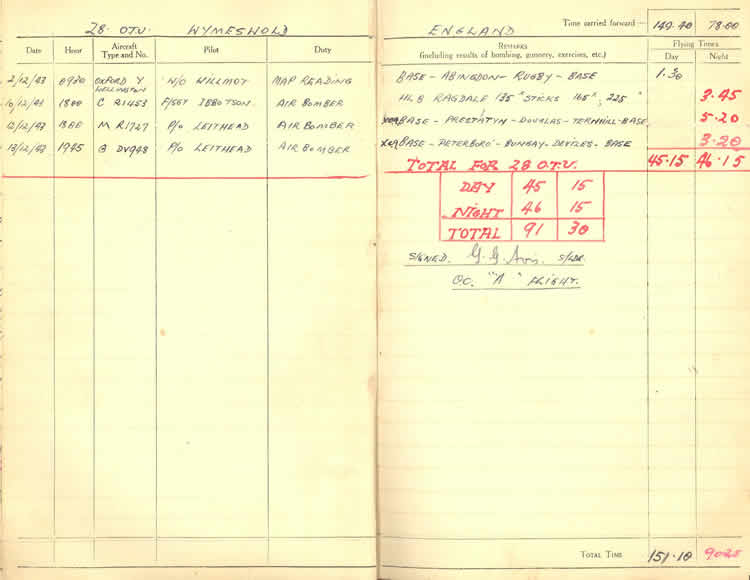 28. O.T.U. WYMESWOLD
ENGLAND Time carried forward 149.40 78.00
Date Hour Aircraft Type and No. Pilot Duty
Remarks (including results of bombing, gunnery, exercises, etc.) Flying Times Day Night
2/12/43 0930 OXFORD Y W/O WILLMOT MAP READING BASE - ABINGDON - RUGBY - BASE 1.30
WELLINGTON
10/12/43 1800 C R1453 F/SGT IBBOTSON AIR BOMBER H.L.B RAGDALE 135° STICKS 165°, 225° 3.45
12/12/43 M R1727 P/O LEITHEAD AIR BOMBER BASE - PRESTATYN - DOUGLAS - TERNHILL - BASE 5.20
13/12/43 1945 G DV948 P/O LEITHEAD AIR BOMBER BASE - PETERBORO' - BUNGAY - DEVILES - BASE 3.20
TOTAL FOR 28 O.T.U. 45.15 46.15
DAY 45 15
NIGHT 46 15
TOTAL 91 30
SIGNED. G. G. Avis. S/LDR.
O.C. "A" FLIGHT.
Total Time 151.10 90.25